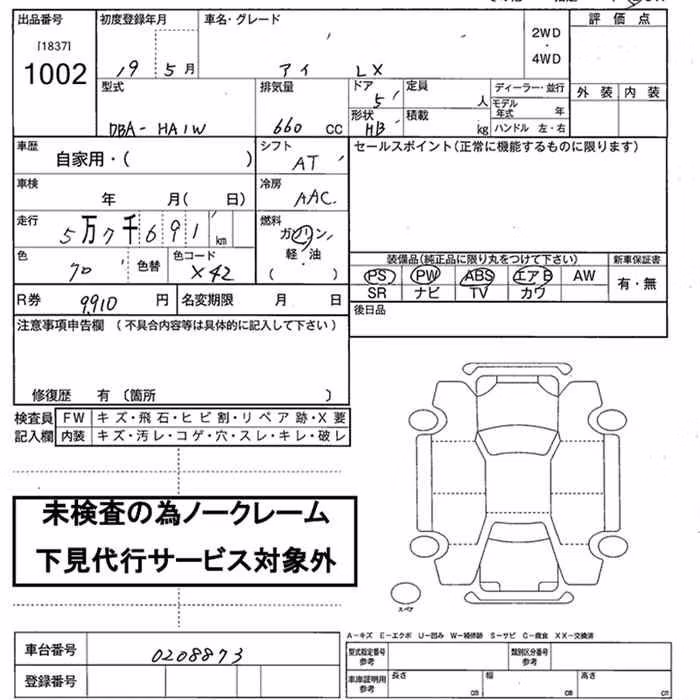 出品番号 初度登録年月 車名・グレード 評価点
[1837] 2WD
1002 19 5月 アイ LX ・ 4WD
型式 排気量 ドア 5 定員 人 ディーラー・並行 外装 内装
モデル年式 年
DBA-HA1W 660 CC 形状 HB 積載 kg ハンドル 左・右
車歴 自家用・( ) シフト AT セールスポイント(正常に機能するものに限ります)
車検 年 月( 日) 冷房 AAC
走行 5万7千691 km 燃料 ガソリン・軽・油 ( )
色 70 色替 色コード X42 装備品(純正品に限り丸をつけて下さい) 新車保証書
PS PW ABS エアB AW 有・無
R券 9910 円 名変期限 月 日 SR ナビ TV カワ
注意事項申告欄 (不具合内容等は具体的に記入して下さい) 後日品
修復歴 有 〔箇所 〕
検査員 FW キズ・飛石・ヒビ割・リペア跡・X要
記入欄 内装 キズ・汚レ・コゲ・穴・スレ・キレ・破レ
未検査の為ノークレーム
下見代行サービス対象外
スペア
A-キズ E-エクボ U-凹み W-補修跡 S-サビ C-腐食 XX-交換済
車台番号 0208873 型式指定番号 参考 類別区分番号 参考
登録番号 車庫証明用 参考 長さ cm 幅 cm 高さ cm